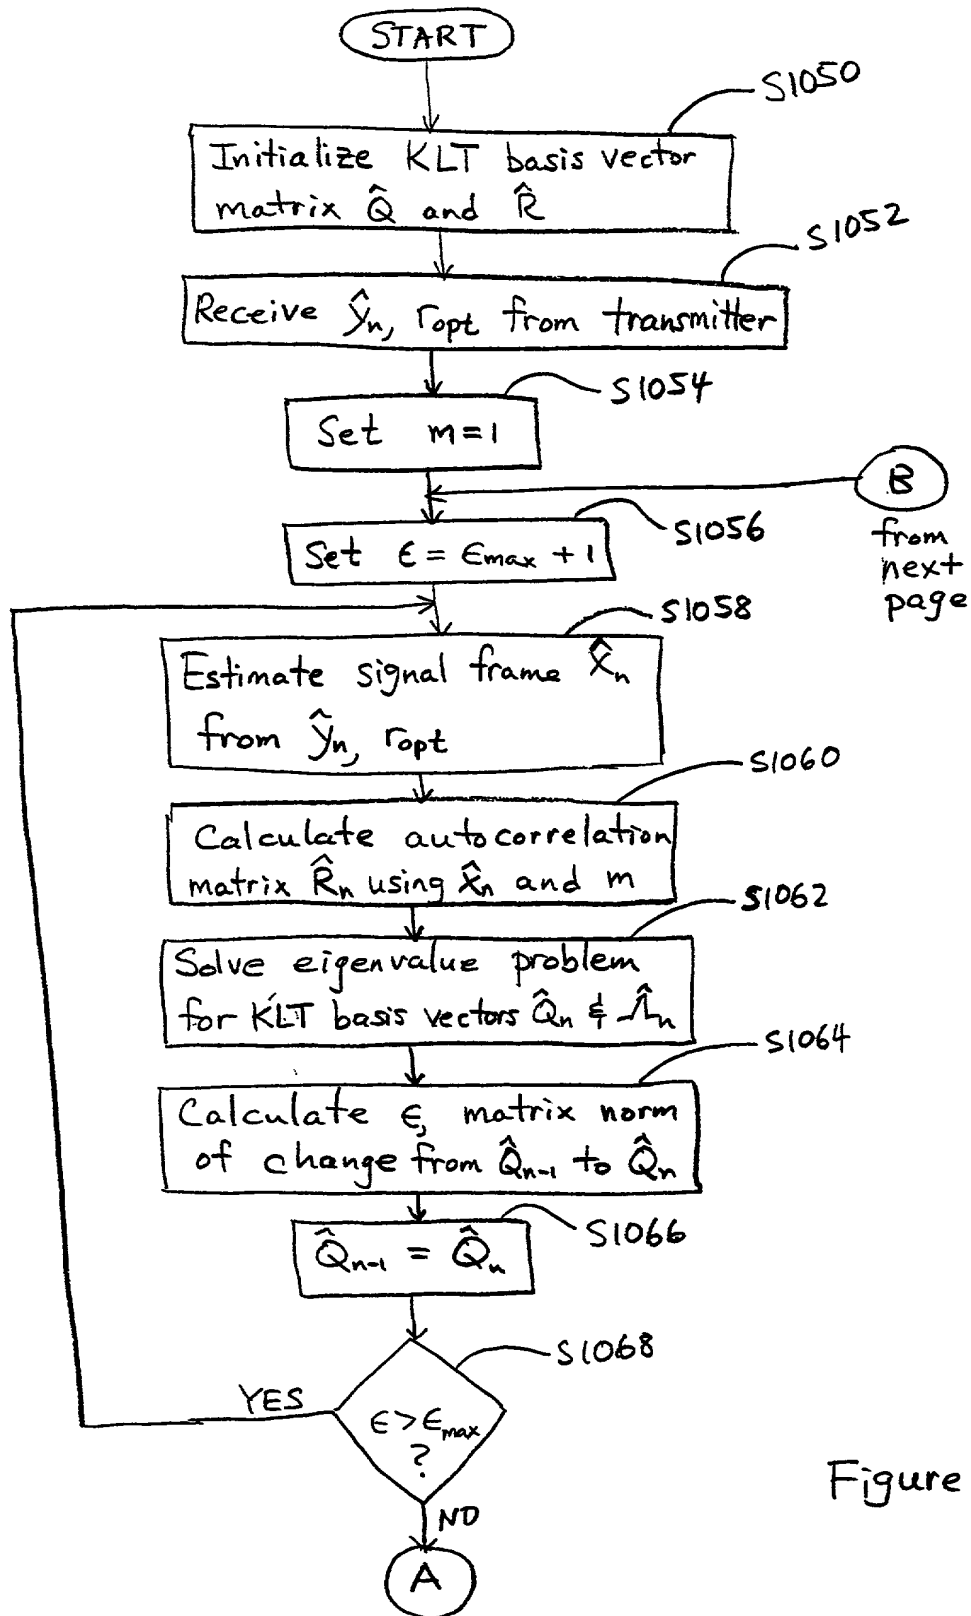 START
S1050
Initialize KLT basis vector
matrix Q̂ and R̂
S1052
Receive ŷn, ropt from transmitter
S1054
Set m=1
B
from
next
page
S1056
Set ϵ = ϵmax + 1
S1058
Estimate signal frame X̂n
from ŷn, ropt
S1060
Calculate autocorrelation
matrix R̂n using x̂n and m
S1062
Solve eigenvalue problem
for KLT basis vectors Q̂n & Λ̂n
S1064
Calculate ϵ, matrix norm
of change from Q̂n-1 to Q̂n
S1066
Q̂n-1 = Q̂n
S1068
YES
ϵ > ϵmax
?
NO
A
Figure